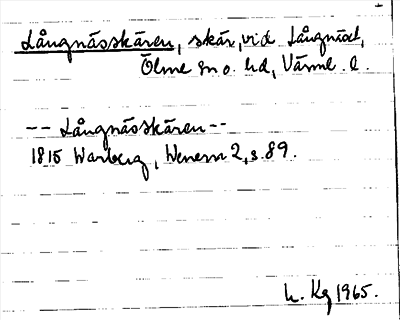 Långnässkären, skär, vid Långnäset,
Ölme sn o. hd, Värml. l.
-- Långnässkären --
1815 Warberg, Wenern 2, s. 89.
L. Kg 1965.